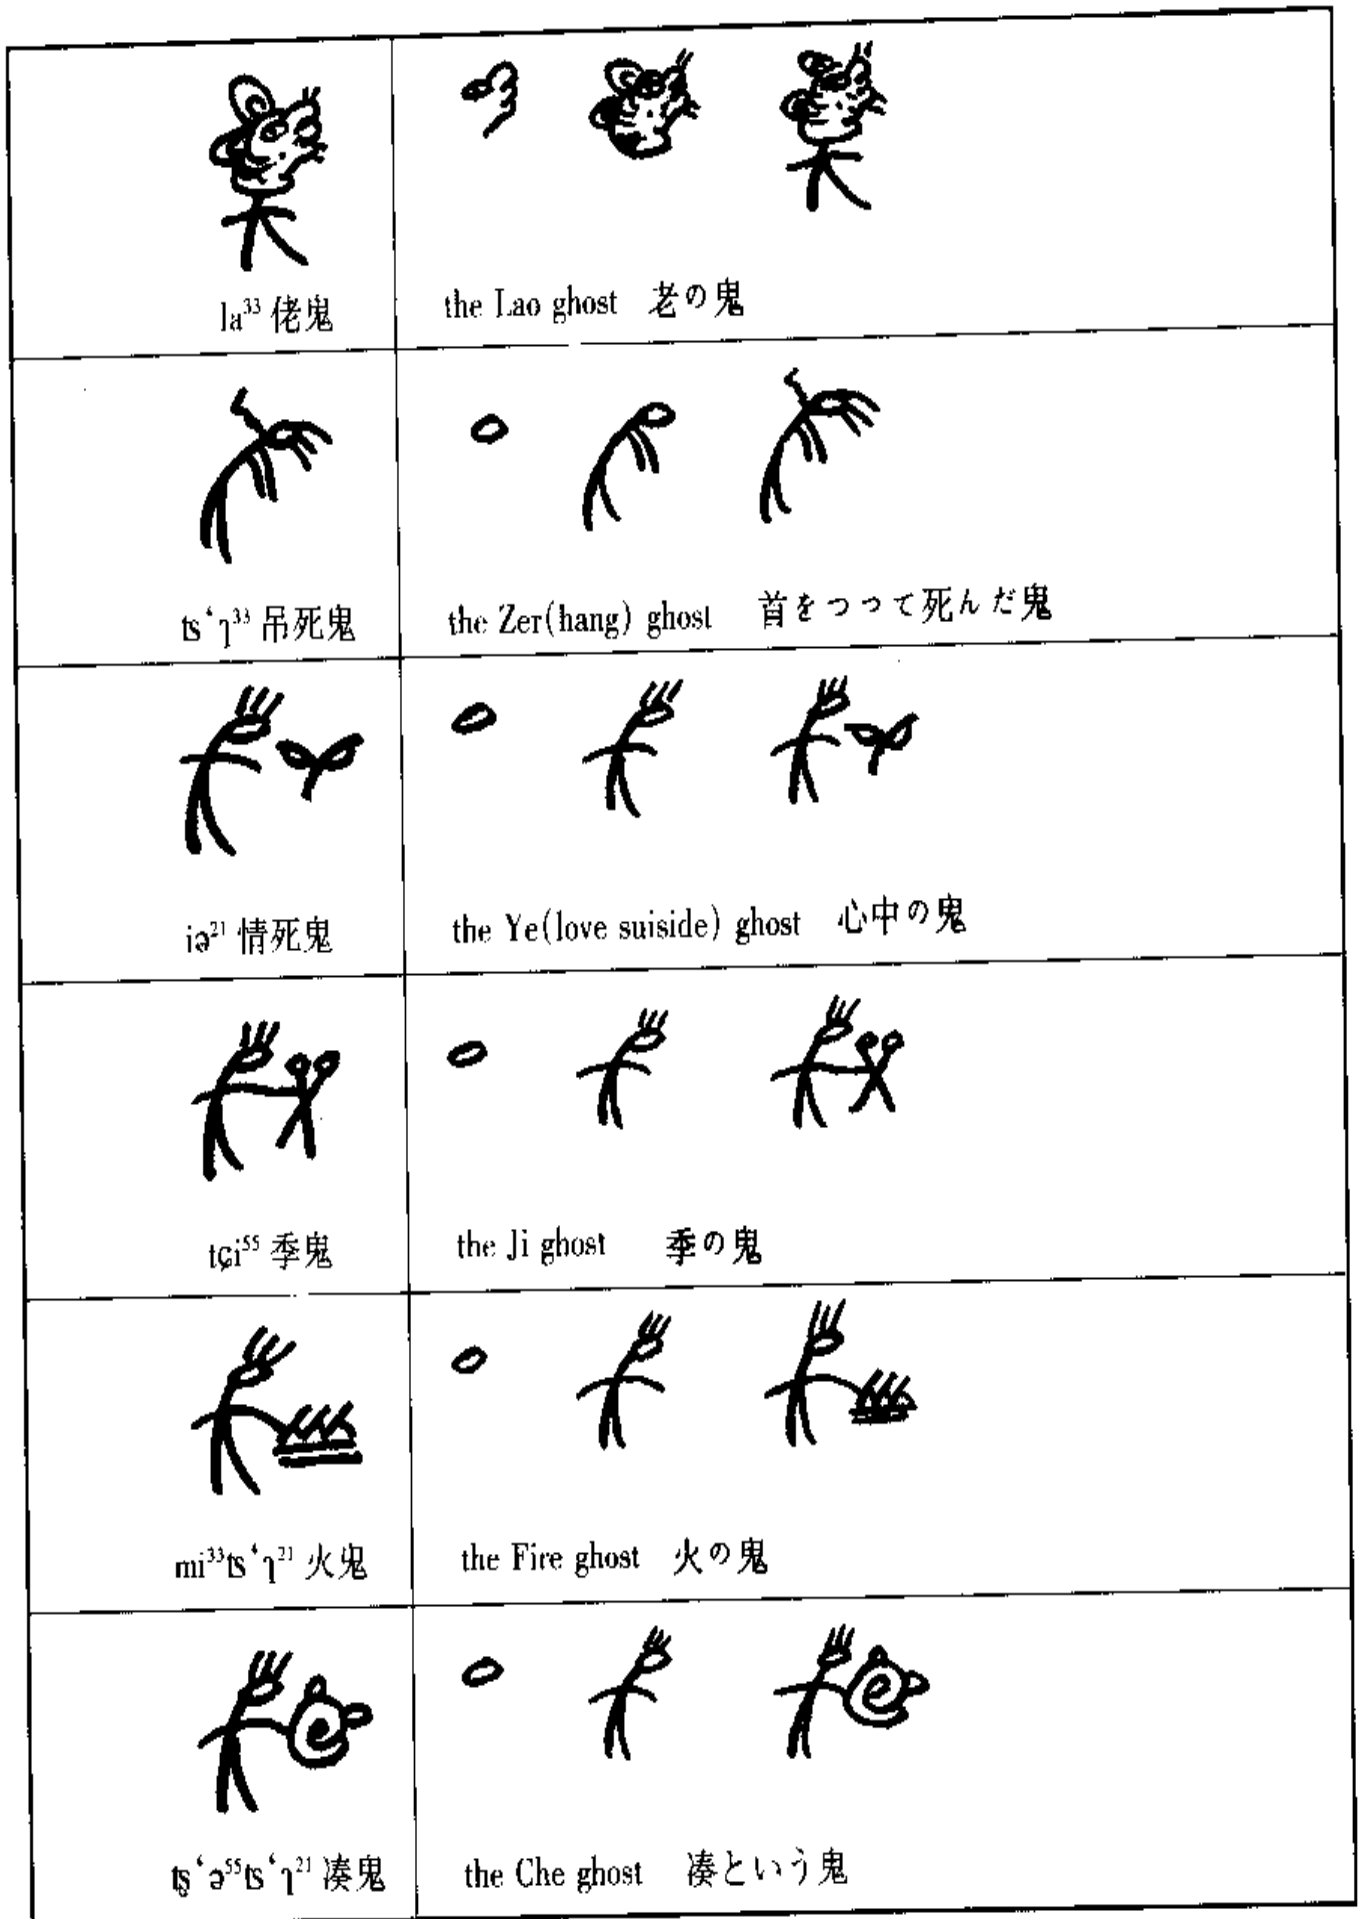 la³³ 佬鬼 the Lao ghost 老の鬼
ts‘ʅ³³ 吊死鬼 the Zer(hang) ghost 首をつって死んだ鬼
iə²¹ 情死鬼 the Ye(love suiside) ghost 心中の鬼
tɕi⁵⁵ 季鬼 the Ji ghost 季の鬼
mi³³ts‘ʅ²¹ 火鬼 the Fire ghost 火の鬼
tʂ‘ə⁵⁵ts‘ʅ²¹ 凑鬼 the Che ghost 凑という鬼